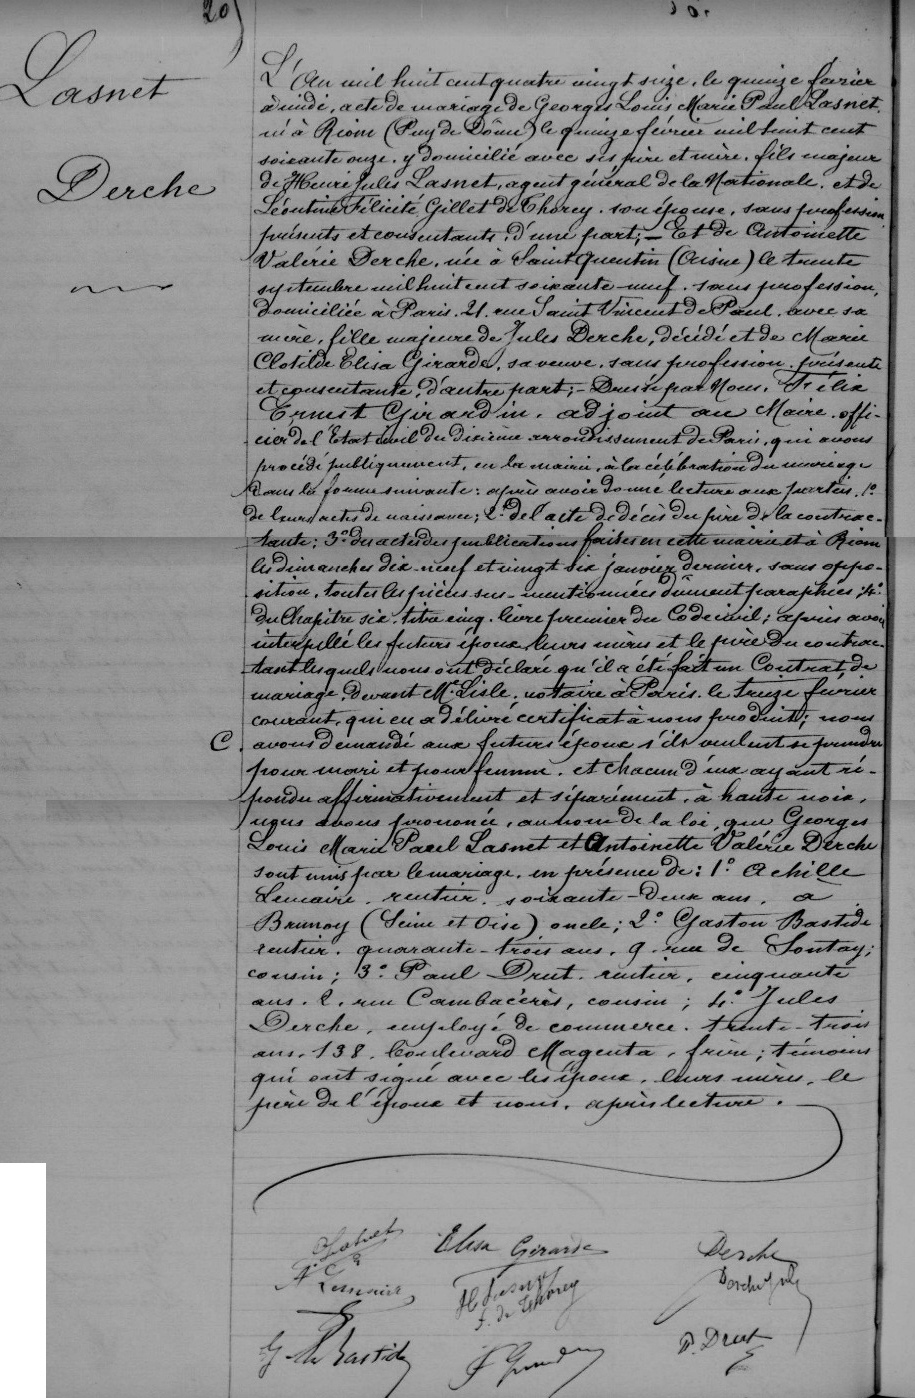 20
Lasnet
Derche
L'An mil huit cent quatre vingt seize, le quinze février
à midi, acte de mariage de Georges Louis Marie Paul Lasnet
né à Riom (Puy de Dôme) le quinze février mil huit cent
soixante onze, y domicilié avec ses père et mère, fils majeur
de Henri Jules Lasnet, agent général de la Nationale, et de
Léontine Félicité Gillet de Thorey, son épouse, sans profession
présents et consentants, d'une part; — Et de Antoinette
Valérie Derche, née à Saint Quentin (Aisne) le trente
septembre mil huit cent soixante-neuf, sans profession,
domiciliée à Paris, 21, rue Saint Vincent de Paul, avec sa
mère, fille majeure de Jules Derche, décédé et de Marie
Clotilde Elisa Girarde, sa veuve, sans profession, présente
et consentante, d'autre part; – Dressé par Nous, Félix
Ernest Girardin, adjoint au Maire, offi-
cier de l'Etat civil du dixième arrondissement de Paris, qui avons
procédé publiquement, en la mairie, à la célébration du mariage
dans la forme suivante: après avoir donné lecture aux parties, 1º
de leurs actes de naissance; 2º de l'acte de décès du père de la contrac-
tante; 3º des actes des publications faites en cette mairie et à Riom
les dimanches dix-neuf et vingt six janvier dernier, sans oppo-
sition, toutes les pièces sus-mentionnées dûment paraphées; 4º
du Chapitre six, titre cinq, livre premier du Code civil; après avoir
interpellé les futurs époux, leurs mères et le père du contrac-
tant lesquels nous ont déclaré qu'il a été fait un Contrat de
mariage, devant Me Lisle, notaire à Paris, le treize février
courant, qui en a délivré certificat à nous produit; nous
C. avons demandé aux futurs époux s'ils veulent se prendre
pour mari et pour femme, et chacun d'eux ayant ré-
pondu affirmativement et séparément, à haute voix,
nous avons prononcé, au nom de la loi, que Georges
Louis Marie Paul Lasnet et Antoinette Valérie Derche
sont unis par le mariage, en présence de: 1º Achille
Lemaire, rentier, soixante-deux ans, à
Brunoy (Seine et Oise) oncle; 2º Gaston Bastide
rentier, quarante-trois ans, 9, rue de Sontay;
cousin; 3º Paul Drut, rentier, cinquante
ans, 2, rue Cambacérès, cousin; 4º Jules
Derche, employé de commerce, trente-trois
ans, 138, boulevard Magenta, frère; témoins
qui ont signé avec les époux, leurs mères, le
père de l'époux et nous, après lecture.
Elisa Girarde
Derche
Lemaire
H Lasnet
Derche Jules
de Thorey
Bastide
P. Drut